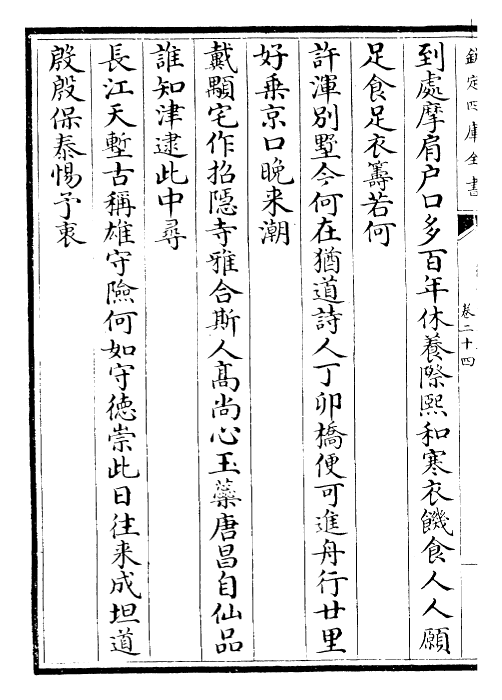 欽定四庫全書
卷二十四
到處摩肩户口多百年休養際熙和寒衣饑食人人願
足食足衣籌若何
許渾別墅今何在猶道詩人丁卯橋便可進舟行廿里
好乗京口晩来潮
戴顒宅作招隠寺雅合斯人髙尚心玉蘂唐昌自仙品
誰知津逮此中尋
長江天塹古稱雄守險何如守徳崇此日往来成坦道
殷殷保泰惕予衷